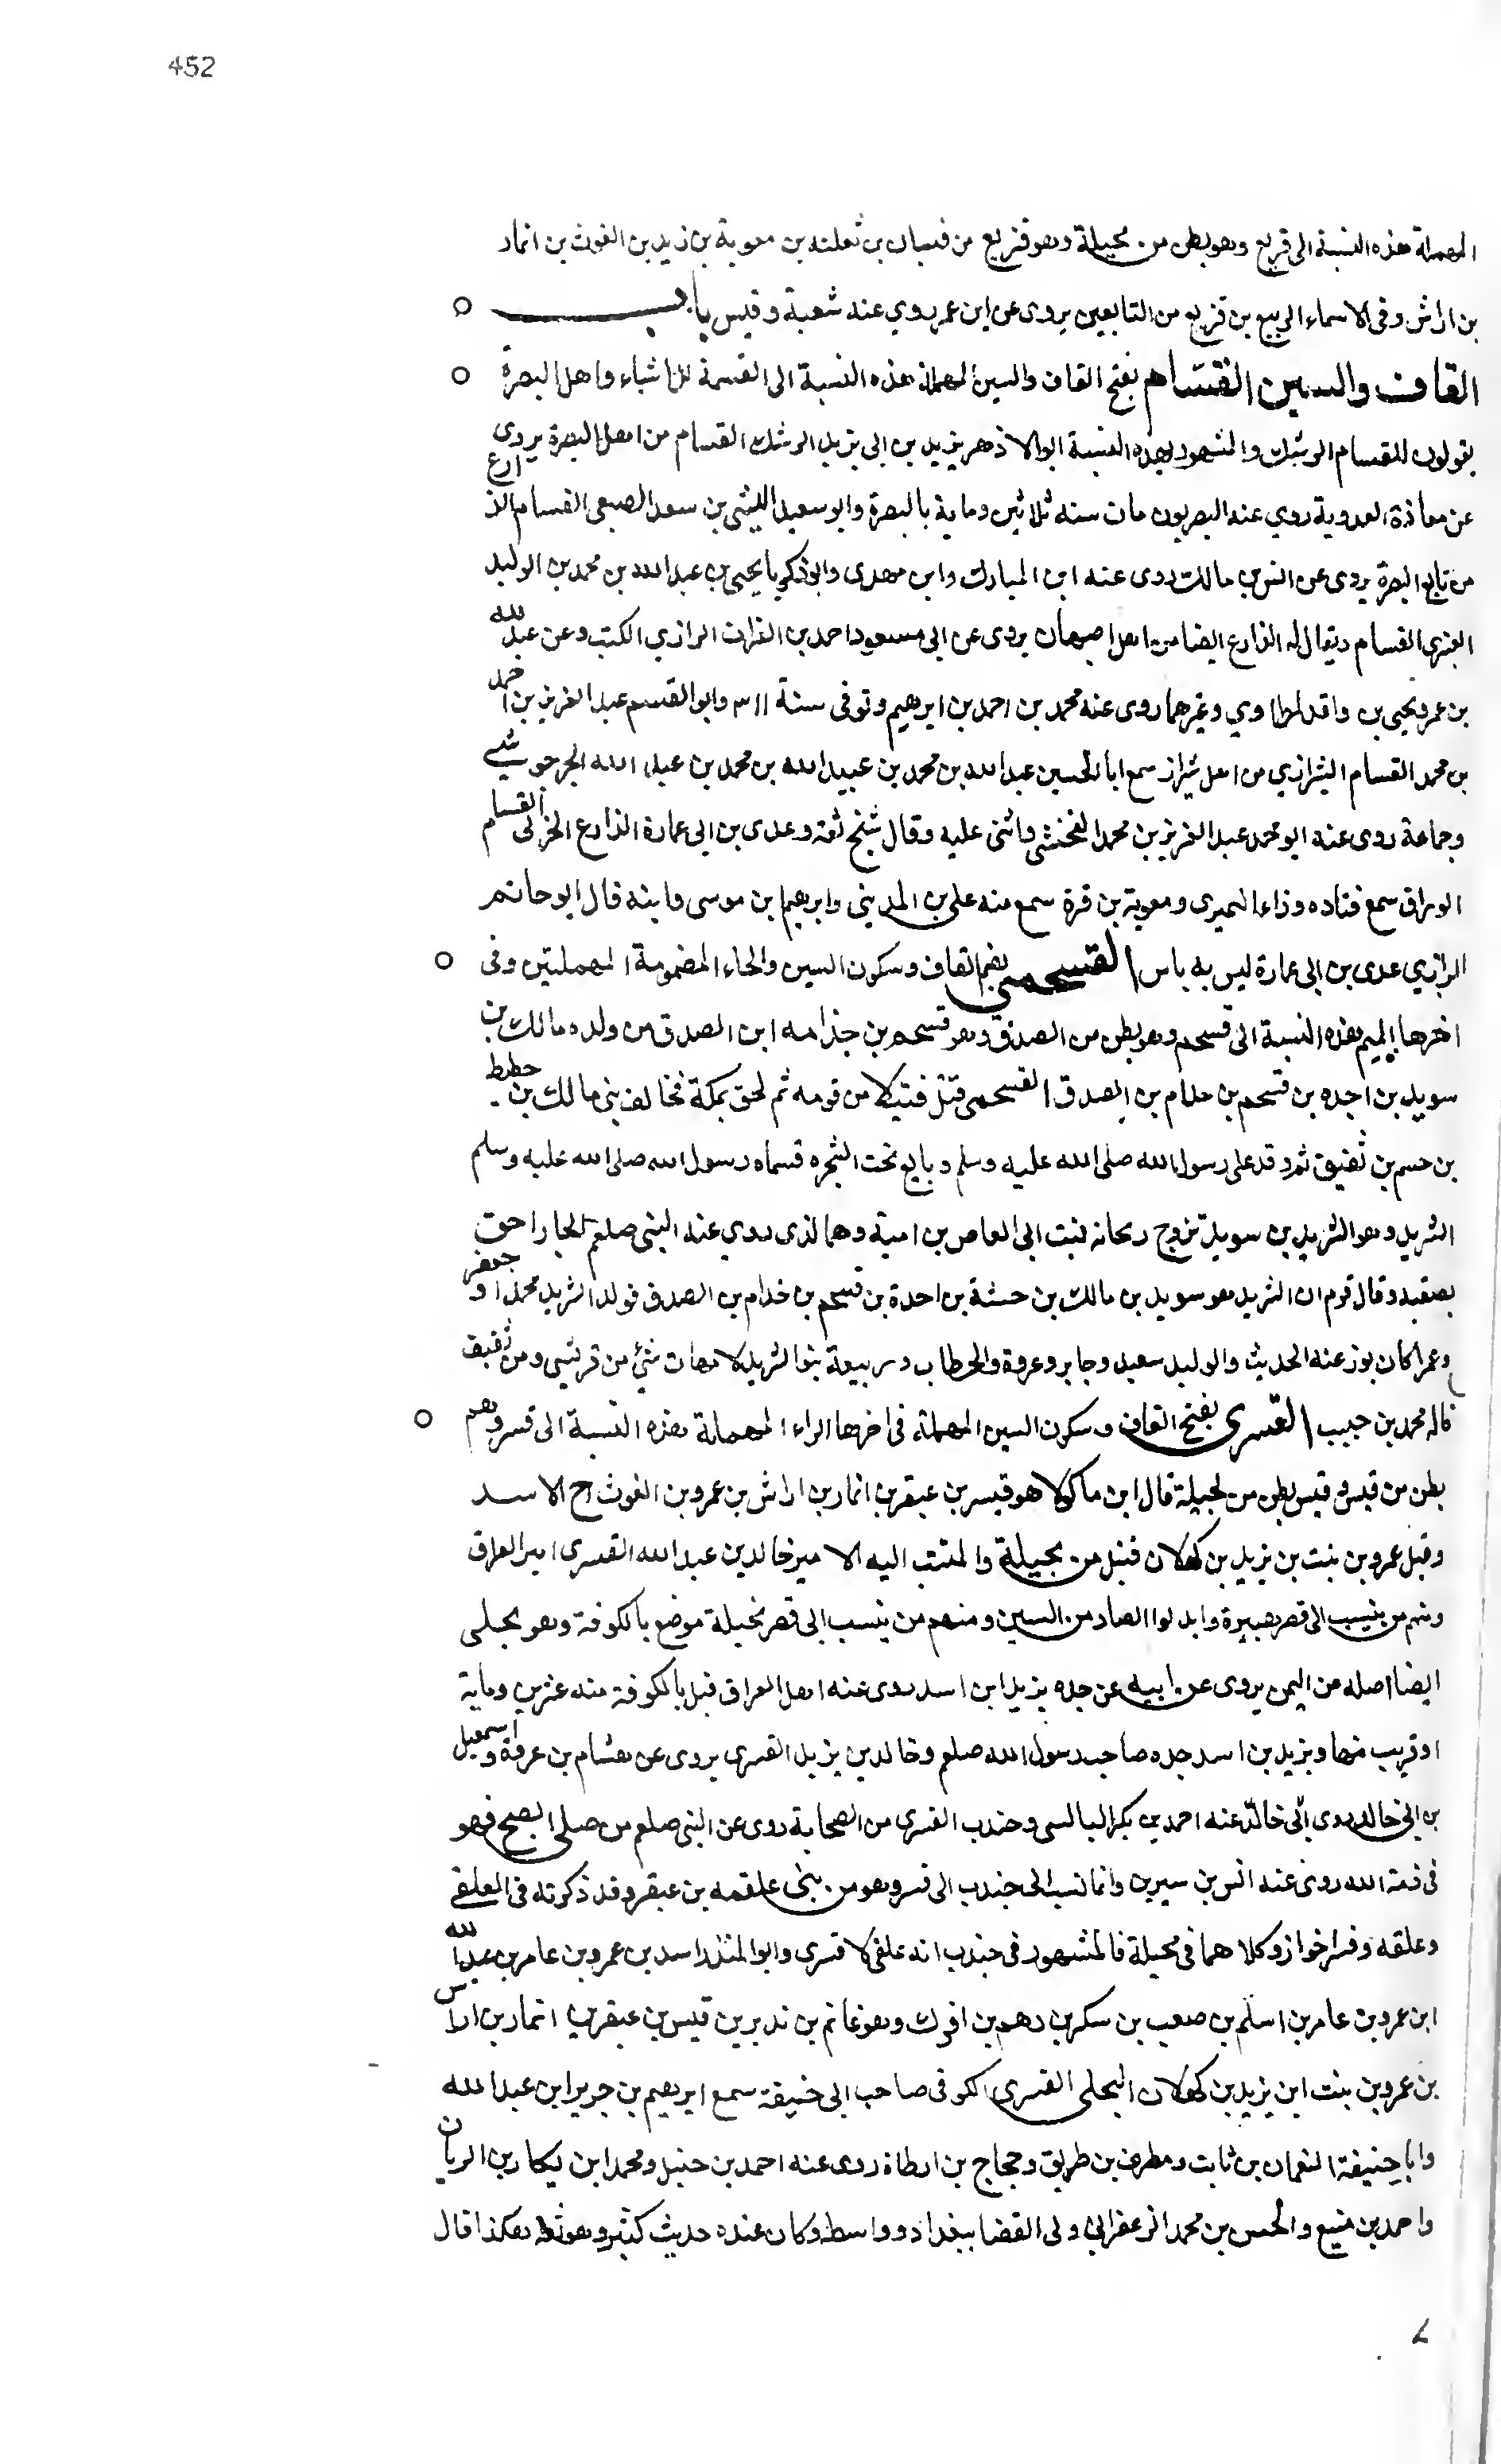 452
المهملة هذه النسبة الى قريع وهو بطن من بجيلة وهو قريع من فتيان بن ثعلبة بن معوية بن زيد بن الغوث بن انمار
بن اراش وفى الاسماء الربيع بن قريع من التابعين يروى عن ابن عمر روي عنه شعبة وقيس باب
القاف والسين القسام بفتح القاف والسين المهملة هذه النسبة الى القسمة للاشياء واهل البصرة
يقولون للقسام الرشك والمشهور بهذه النسبة ابو الازهر يزيد بن ابى يزيد الرشك القسام من اهل البصرة يروى
عن معاذة العدوية روي عنه البصريون مات سنه ثلاثين وماية بالبصرة وابو سعيد المثنى بن سعد الضبعى القسام الذارع
من تابع البصرة يروى عن انس بن مالك روى عنه ابن المبارك وابن مهدى وابو زكريا يحيى بن عبد الله بن محمد بن الوليد
العنبرى القسام ويقال له الذارع ايضا من اهل اصبهان يروى عن ابى مسعود احمد بن الفرات الرازي الكتب وعن عبد الله
بن عمر ويحيى بن واقد الطاوي وغيرهما روى عنه محمد بن احمد بن ابرهيم وتوفى سنة ٣١١ وابو القسم عبد العزيز بن احمد
بن محمد القسام الشيرازي من اهل شيراز سمع ابا الحسين عبد الله بن محمد بن عبيد الله بن محمد بن عبد الله الجرجوشي
وجماعة روى عنه ابو محمد عبد العزيز بن محمد النخشبى واثنى عليه وقال شيخ ثقة وعدى بن ابى عمارة الذارع الجرمى القسام
الوراق سمع قتاده وزاد النميرى ومعوية بن قرة سمع منه على بن المدينى وابرهيم بن موسى وابنه قال ابو حاتم
الرازي عدى بن ابى عمارة ليس به باس القسحمى بضم القاف وسكون السين والحاء المضمومة المهملتين وفى
اخرها الميم هذه النسبة الى قسحم وهو بطن من الصدف وهو قسحم بن جذامه ابن الصدف من ولده مالك بن
سويد بن اجده بن قسحم بن حلام بن الصدف القسحمى قتل قتيلا من قومه ثم لحق بمكة فحالف بنى مالك بن حطيط
بن حسم بن ثقيف ثم وفد على رسول الله صلى الله عليه وسلم وبايع تحت الشجره فسماه رسول الله صلى الله عليه وسلم
الشريد وهو الشريد بن سويد تزوج ريحانه بنت ابى العاص بن امية وهو الذى روي عنه النبى صلعم الجار احق
بصقبه وقال قوم ان الشريد هو سويد بن مالك بن حشنة بن احدة بن قسحم بن خذام بن الصدف فولد الشريد محمدا وجعفر
وعمرا كان يوخذ عنه الحديث والوليد سعيد وجابر وعروة والحطاب وربيعة بنو الشريد لامهات شتى من قريش ومن ثقيف
قاله محمد بن حبيب القسري بفتح القاف وسكون السين المهملة فى اخرها الراء المهملة هذه النسبة الى قسر وهم
بطن من قيس وقيس بطن من بجيلة قال ابن ماكولا هو قيسر بن عبقر بن انمار بن اراش بن عمرو بن الغوث اخ الاسد
وقيل عمرو بن بنت بن يزيد بن كهلان قبيل من بجيلة والمنتسب اليه الامير خالد بن عبد الله القسرى امير العراق
ومنهم من ينسب الى قصر هبيرة وابدلوا الصاد من السين ومنهم من ينسب الى قصر بجيلة موضع بالكوفة وهو بجلى
ايضا اصله من اليمن يروى عن ابيه عن جده يزيد ابن اسد روى عنه اهل العراق قتل بالكوفة سنه عشرين وماية
او قريب منها ويزيد بن اسد جده صاحب رسول الله صلعم وخالد بن يزيد القسرى يروى عن هشام بن عروة واسمعيل
بن ابى خالد روى ابى خالد عنه احمد بن بكر البالسى وجندب القسرى من الصحابة روى عن النبى صلعم من صلى الصبح فهو
فى ذمة الله روى عنه انس بن سيرين وانما نسب الى جندب الى قسر وهو من بنى علقمه بن عبقر وقد ذكرته فى العلقى
وعلقه وقسر اخوان وكلاهما فى بجيلة فالمشهور فى جندب انه علقى لا قسرى وابو المنذر اسد بن عمرو بن عامر بن عبد الله
ابن عمرو بن عامر بن اسلم بن صعب بن سكر بن رهم بن افرك وهو غانم بن ندير بن قيس بن عبقر بن انمار بن اراس
بن عمرو بن بنت ابن يزيد بن كهلان البجلى القسرى الكوفى صاحب ابى حنيفة سمع ابرهيم بن جرير ابن عبد الله
وابا حنيفة النعمان بن ثابت ومطرف بن طريق وحجاج بن ارطاة روى عنه احمد بن حنبل ومحمد ابن بكار بن الريان
واحمد بن منيع والحسن بن محمد الزعفرانى ولى القضا ببغداد وواسط وكان عنده حديث كثير وهو ثقة هكذا قال